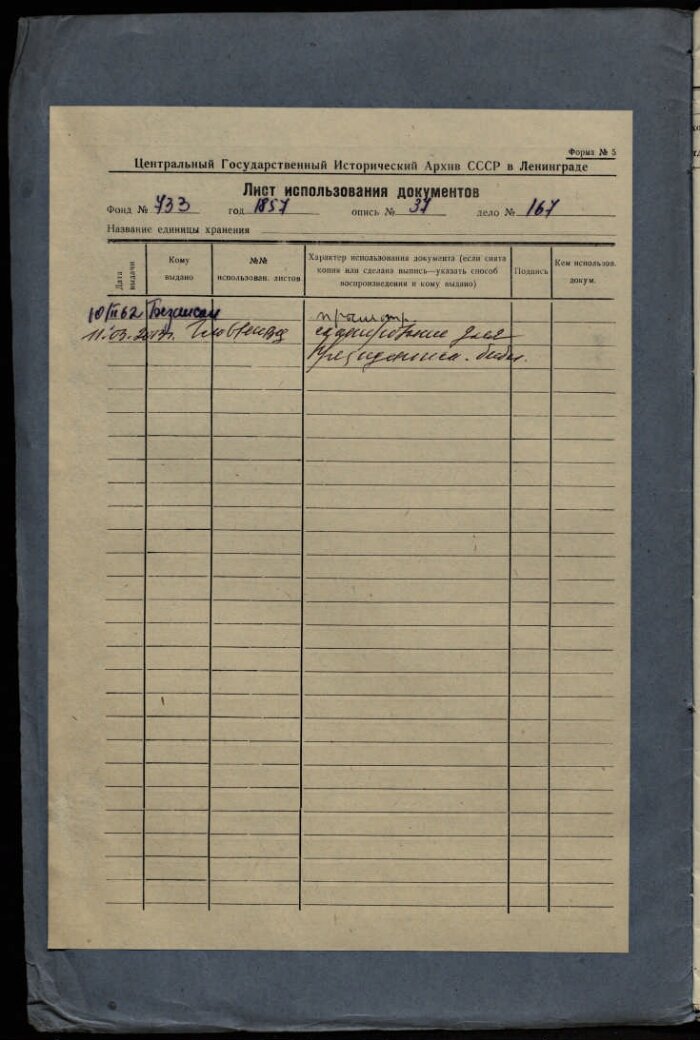 Форма № 5
Центральный Государственный Исторический Архив СССР в Ленинграде
Лист использования документов
Фонд № 733 год 1857 опись № 37 дело № 167
Название единицы хранения
Дата выдачи
Кому выдано
№№ использован. листов
Характер использования документа (если снята
копия или сделана выпись—указать способ
воспроизведения и кому выдано)
Подпись
Кем использов.
докум.
просмотр.
сканирование для